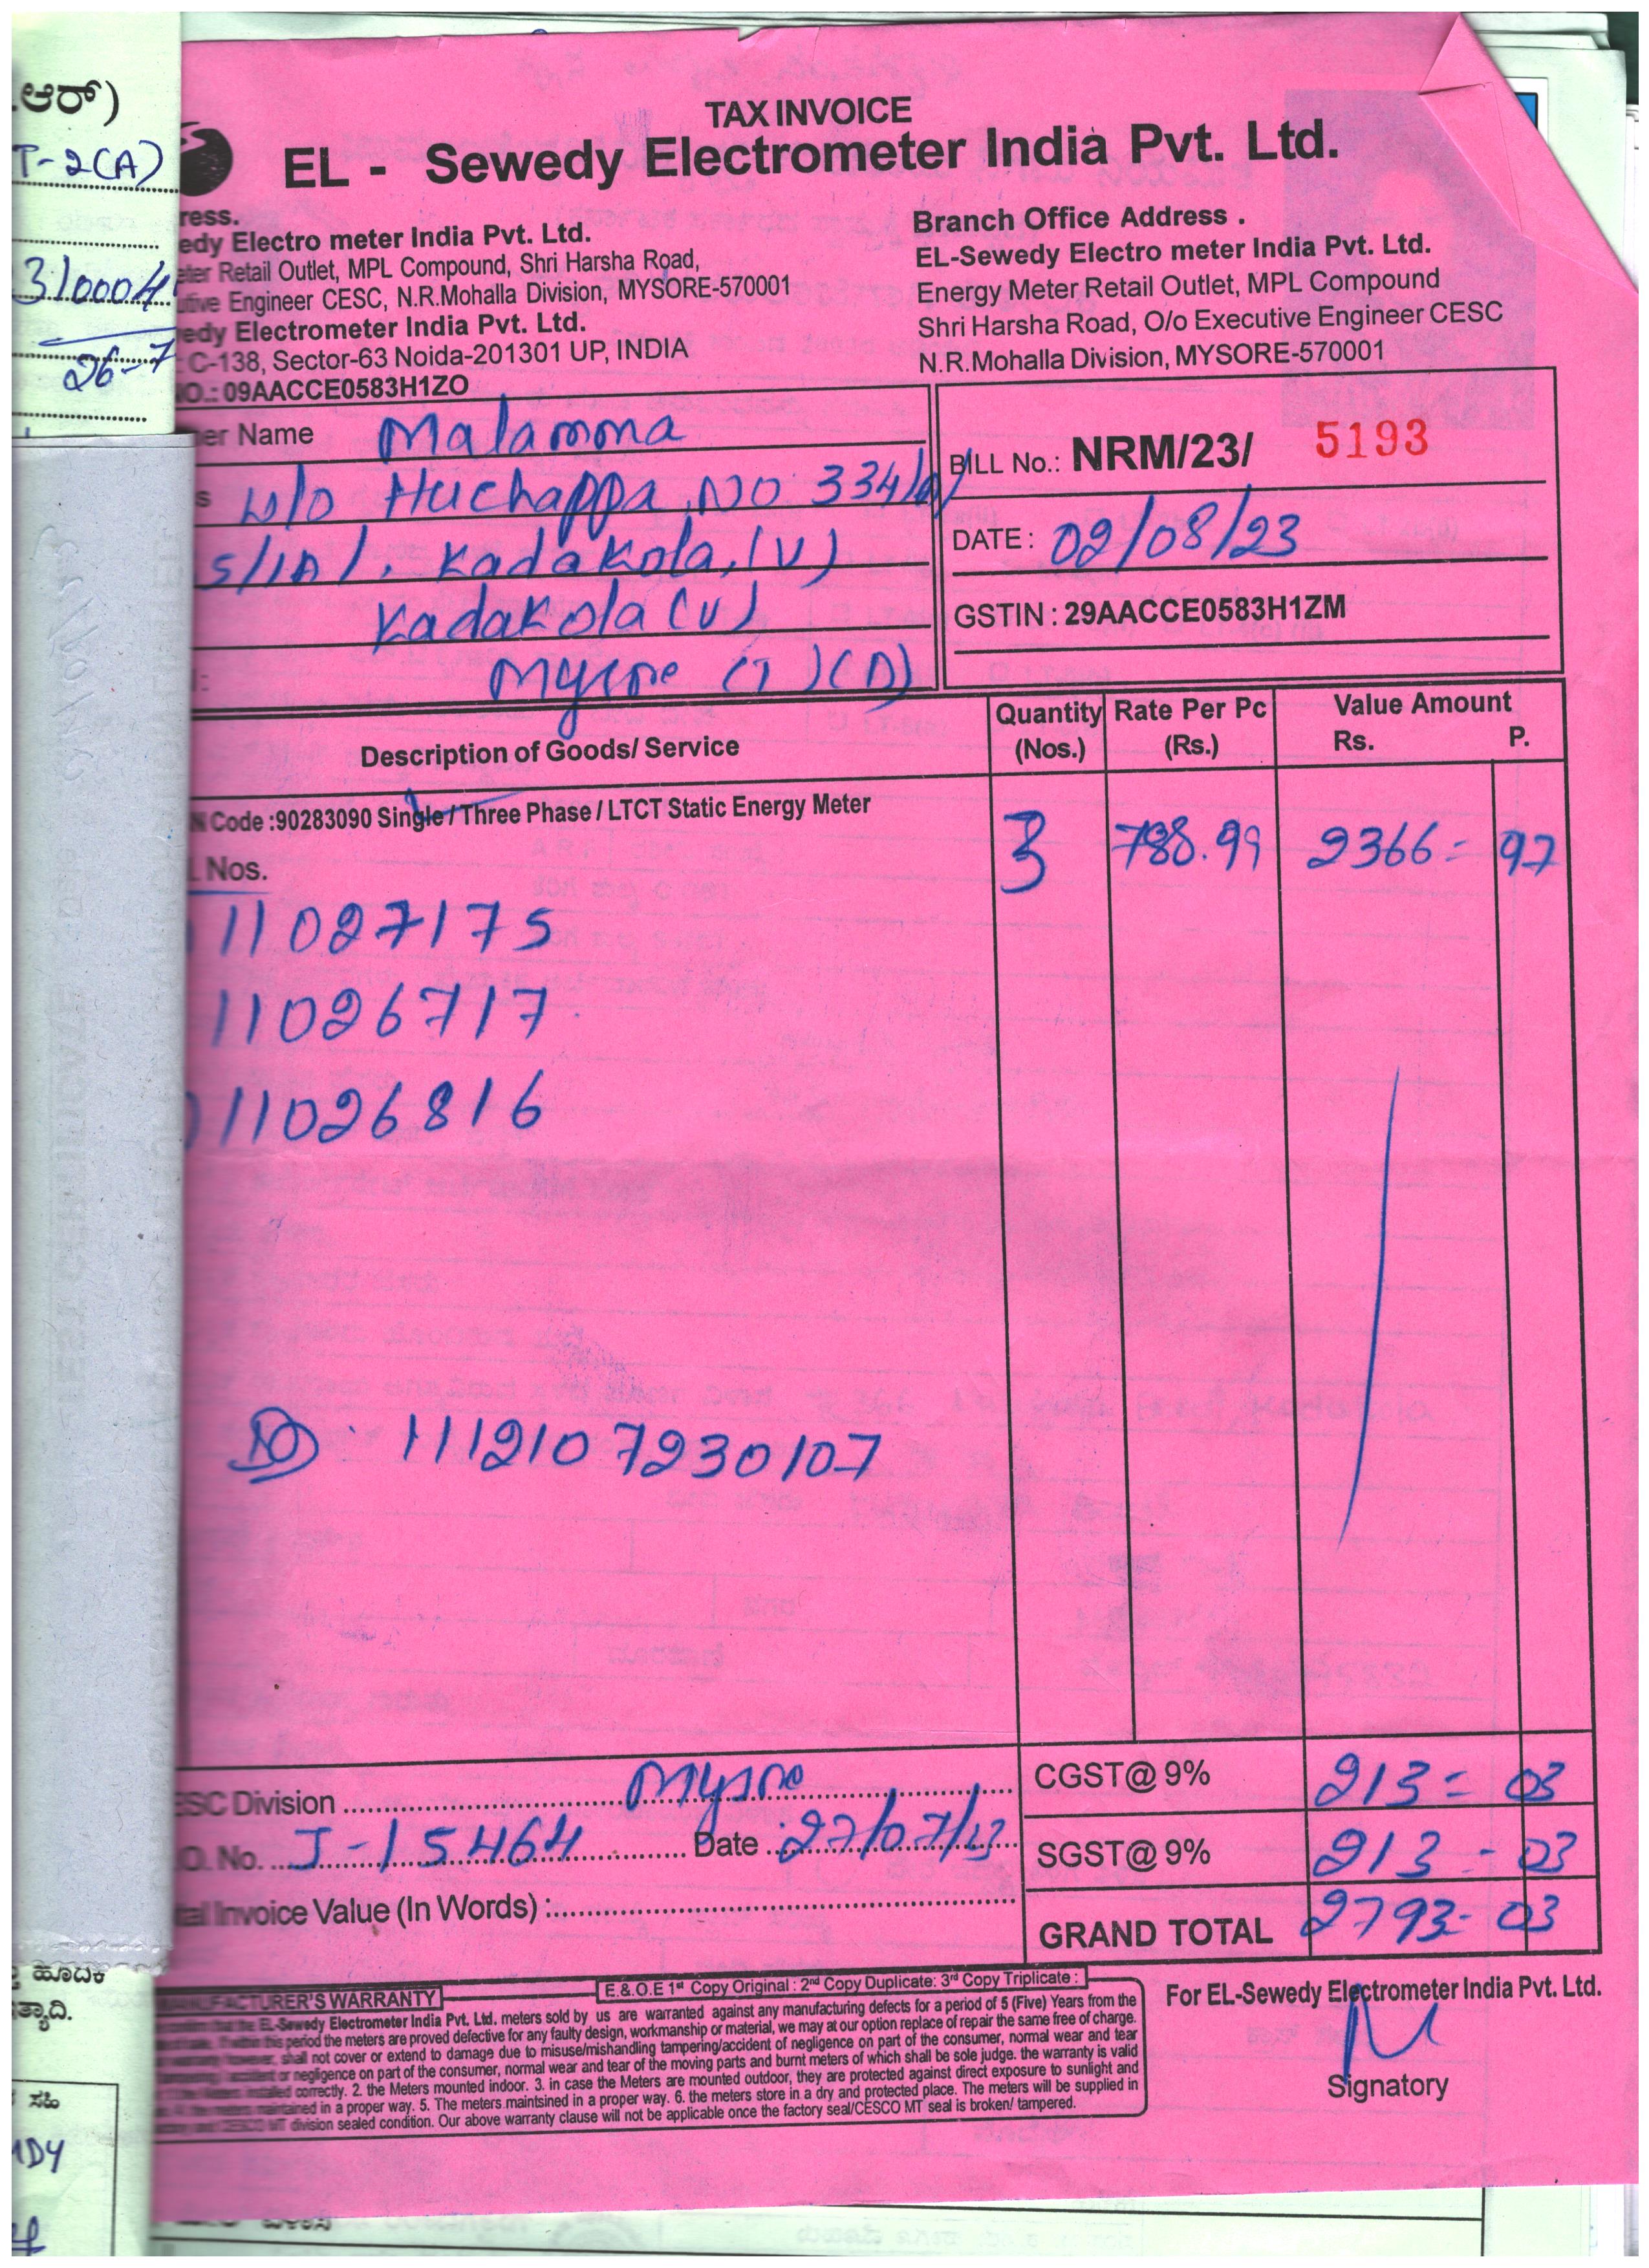 .ಆರ್)
T-2(A)
3/0004
26-7
TAX INVOICE
EL - Sewedy Electrometer India Pvt. Ltd.
ress.
edy Electro meter India Pvt. Ltd.
eter Retail Outlet, MPL Compound, Shri Harsha Road,
utive Engineer CESC, N.R.Mohalla Division, MYSORE-570001
edy Electrometer India Pvt. Ltd.
C-138, Sector-63 Noida-201301 UP, INDIA
NO.: 09AACCE0583H1ZO
Branch Office Address .
EL-Sewedy Electro meter India Pvt. Ltd.
Energy Meter Retail Outlet, MPL Compound
Shri Harsha Road, O/o Executive Engineer CESC
N.R.Mohalla Division, MYSORE-570001
er Name Malamma
s w/o Huchappa, NO 334/
Kadakola, (V)
Kadakola (V)
Mysore (T) (D)
BILL No.: NRM/23/ 5193
DATE : 02/08/23
GSTIN : 29AACCE0583H1ZM
Description of Goods/ Service
Quantity (Nos.)
Rate Per Pc (Rs.)
Value Amount
Rs. P.
N Code :90283090 Single / Three Phase / LTCT Static Energy Meter
3 788.99 2366= 97
Nos.
11027175
11026717
11026816
1112107230107
ESC Division Mysore
.O. No. J-15464 Date : 27/07/23
tal Invoice Value (In Words) :
CGST@ 9% 213= 03
SGST@ 9% 213 - 03
GRAND TOTAL 2793- 03
MANUFACTURER'S WARRANTY
E.& O.E 1st Copy Original : 2nd Copy Duplicate: 3rd Copy Triplicate :
that the EL-Sewedy Electrometer India Pvt. Ltd. meters sold by us are warranted against any manufacturing defects for a period of 5 (Five) Years from the
If within this period the meters are proved defective for any faulty design, workmanship or material, we may at our option replace of repair the same free of charge.
however, shall not cover or extend to damage due to misuse/mishandling tampering/accident of negligence on part of the consumer, normal wear and tear
accident or negligence on part of the consumer, normal wear and tear of the moving parts and burnt meters of which shall be sole judge. the warranty is valid
installed correctly. 2. the Meters mounted indoor. 3. in case the Meters are mounted outdoor, they are protected against direct exposure to sunlight and
maintained in a proper way. 5. The meters maintsined in a proper way. 6. the meters store in a dry and protected place. The meters will be supplied in
MT division sealed condition. Our above warranty clause will not be applicable once the factory seal/CESCO MT seal is broken/ tampered.
For EL-Sewedy Electrometer India Pvt. Ltd.
Signatory
ಹೂದಿಕೆ
ತ್ಯಾದಿ.
ಸಹಿ